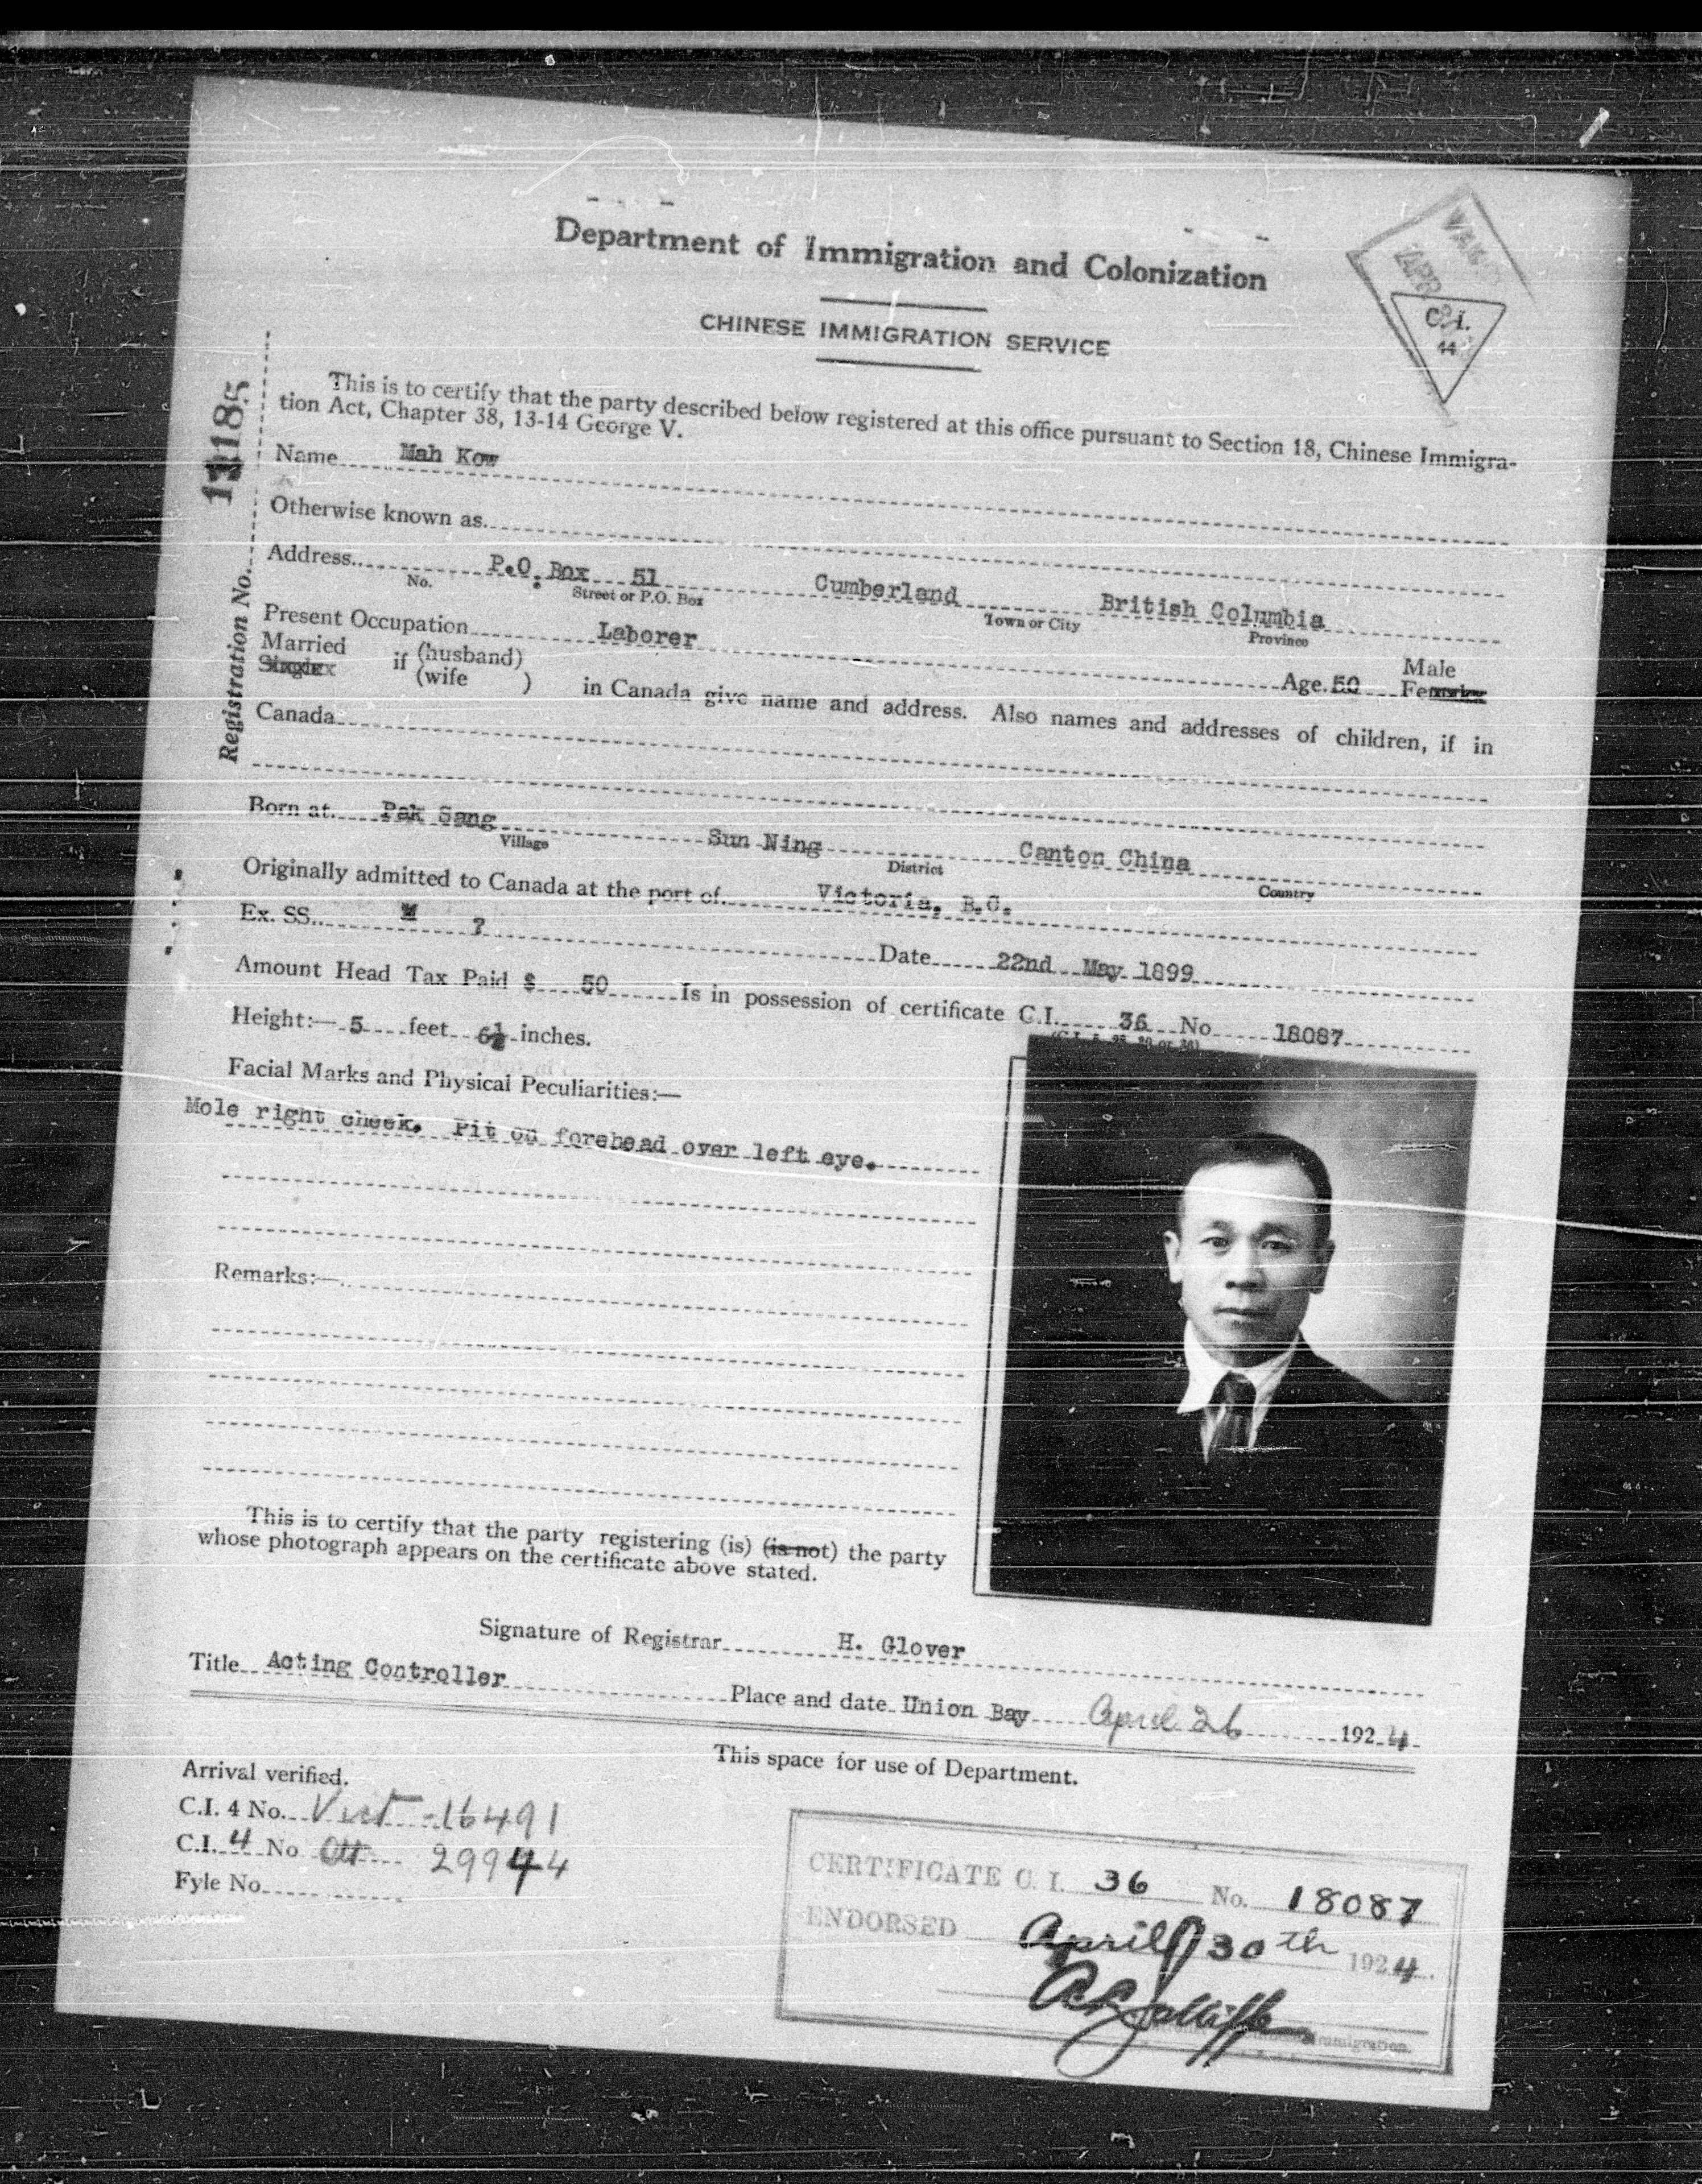 Department of Immigration and Colonization
CHINESE IMMIGRATION SERVICE
APR
C.I.
44
This is to certify that the party described below registered at this office pursuant to Section 18, Chinese Immigra-
tion Act, Chapter 38, 13-14 George V.
Registration No.
Name Mah Kow
Otherwise known as
Address P.O. Box 51 Cumberland British Columbia
No. Street or P.O. Box Town or City Province
Present Occupation Laborer
Married
Single if (husband) (wife ) in Canada give name and address. Also names and addresses of children, if in
Age 50 Male Female
Canada
Born at Pak Sang Sun Ning Canton China
Village District Country
Originally admitted to Canada at the port of Victoria, B.C.
Ex. SS. M ? Date 22nd May 1899
Amount Head Tax Paid $ 50 Is in possession of certificate C.I. 36 No 18087
Height:— 5 feet 6½ inches.
Facial Marks and Physical Peculiarities:—
Mole right cheek. Pit on forehead over left eye.
Remarks:—
This is to certify that the party registering (is) (is not) the party
whose photograph appears on the certificate above stated.
Signature of Registrar H. Glover
Title Acting Controller Place and date Union Bay April 26 1924
This space for use of Department.
Arrival verified.
C.I. 4 No. Vict - 16491
C.I. 4 No Ott 29944
Fyle No.
CERTIFICATE C. I. 36 No. 18087
ENDORSED April 30th 1924.
Immigration.